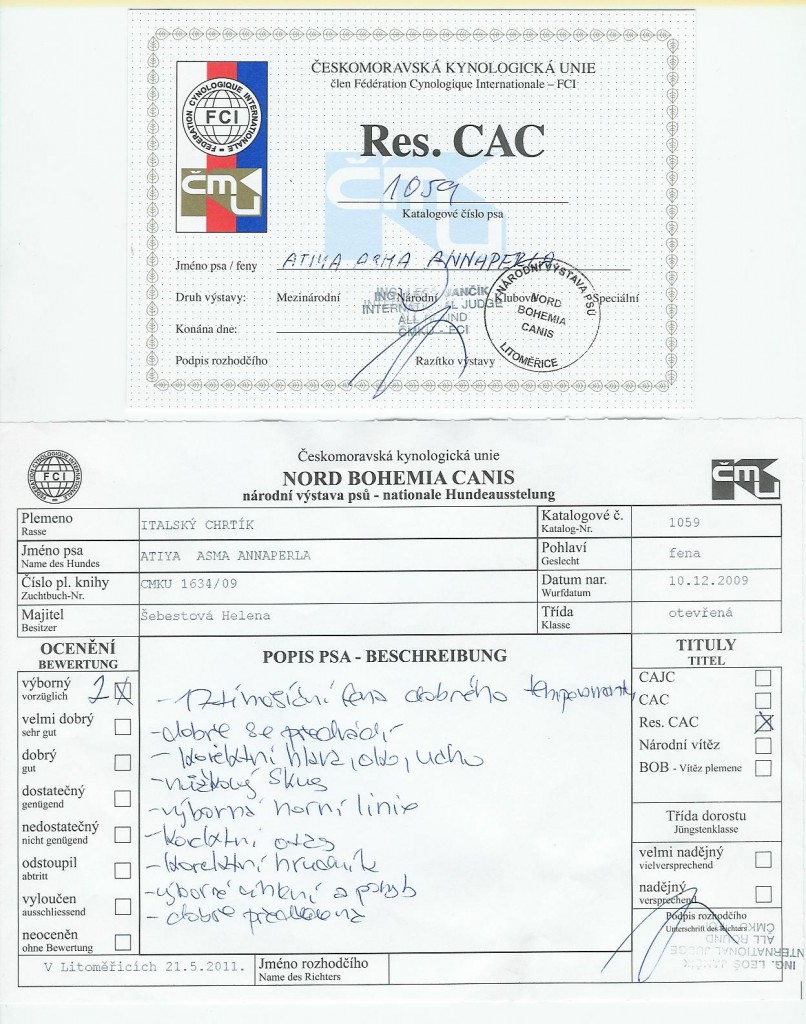 ČESKOMORAVSKÁ KYNOLOGICKÁ UNIE
člen Fédération Cynologique Internationale – FCI
FEDERATION CYNOLOGIQUE INTERNATIONALE
FCI
Res. CAC
čmku
1059
Katalogové číslo psa
Jméno psa / feny ATIYA ASMA ANNAPERLA
Druh výstavy: Mezinárodní Národní Klubová Speciální
ING. LEOŠ JANČÍK
INTERNATIONAL JUDGE
ALL ROUND
ČMKU - FCI
NÁRODNÍ VÝSTAVA PSŮ
NORD
BOHEMIA
CANIS
LITOMĚŘICE
Konána dne:
Podpis rozhodčího Razítko výstavy
Českomoravská kynologická unie
FCI
NORD BOHEMIA CANIS
čmku
národní výstava psů - nationale Hundeausstelung
Plemeno ITALSKÝ CHRTÍK Katalogové č. 1059
Rasse Katalog-Nr.
Jméno psa ATIYA ASMA ANNAPERLA Pohlaví fena
Name des Hundes Geslecht
Číslo pl. knihy CMKU 1634/09 Datum nar. 10.12.2009
Zuchtbuch-Nr. Wurfdatum
Majitel Šebestová Helena Třída otevřená
Besitzer Klasse
OCENĚNÍ
BEWERTUNG
výborný 2
vorzüglich
velmi dobrý
sehr gut
dobrý
gut
dostatečný
genügend
nedostatečný
nicht genügend
odstoupil
abtritt
vyloučen
ausschliessend
neoceněn
ohne Bewertung
POPIS PSA - BESCHREIBUNG
- 17timěsíční fena dobrého temperamentu
- dobře se předvádí
- korektní hlava, oko, ucho
- nůžkový skus
- výborná horní linie
- korektní ocas
- korektní hrudník
- výborné úhlení a pohyb
- dobře předvedena
TITULY
TITEL
CAJC
CAC
Res. CAC
Národní vítěz
BOB - Vítěz plemene
Třída dorostu
Jüngstenklasse
velmi nadějný
vielversprechend
nadějný
versprechend
Podpis rozhodčího
Unterschrift des Richters
ING. LEOŠ JANČÍK
INTERNATIONAL JUDGE
ALL ROUND
ČMKU
V Litoměřicích 21.5.2011. Jméno rozhodčího
Name des Richters